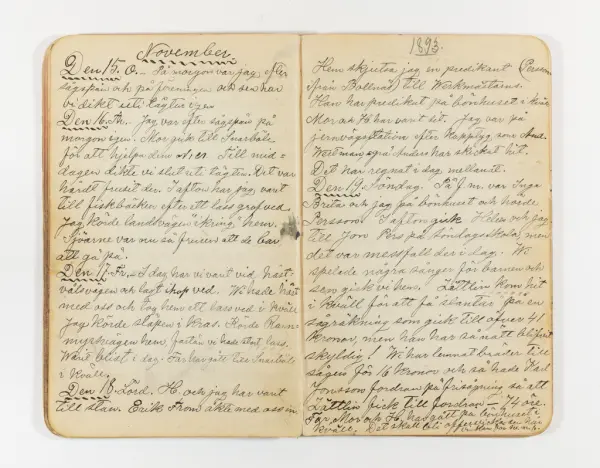 November.
Den 15. O. – På morgon var jag efter
sågspån och på föreningen och sen har
vi dikt uti tägten igen.
Den 16. Th. Jag var efter sågspån på
morgon igen. Mor gick till Snarbäls
för att hjelpa dem Till mid=
dagen dikte vi slut uti tägten. Det var
hårdt frusit der. I afton har jag varit
till fiskbäcken efter ett lass grofved.
Jag körde landsvägen ikring hem.
Sjöarne var nu så frusen att de bar
att gå på.
Den 17. Fr. I dag har vi varit vid
vägen och lagt ihop ved. Vi hade
med oss och tog hem ett lass ved i kväll
Jag körde stapen i kras. Körde
myrvägen hem, fastän vi hade stort lass.
Varit blidt i dag. Far har gått till Snarbäls
i kväll.
Den 18. Lörd. H. och jag har varit
till stan. Erik From åkte med oss in
1893.
Hem skjutsa jag en predikant (Persson
från Bollnäs) till Verkmästarns.
Han har predikat på bönhuset i
Mor och H. har varit det. Jag var på
jernvägsstation efter som And.
Anders har skickat hit.
Det har regnat i dag mellanåt.
Den 19. Söndag. På f.m. var Inga
Brita och jag på bönhuset och hörde
Persson. I afton gick Helen och jag
till Jon Pers på söndagsskola, men
det var messfall der i dag. Vi
spelade några sånger för barnen och
sen gick vi hem. Lättlin kom hit
i kväll för att få slantar på en
sågräkning som gick till öfver 41
kronor, men han har så nått blifvit
skyldig! Vi har lemnat bräder till
sågen för 16 kronor och så hade Karl
Jonsson fordran på frisågning så att
Lättlin fick till fordran – 74 öre.
Far Mor och H. har gått på bönhuset i
kväll. Det skall bli